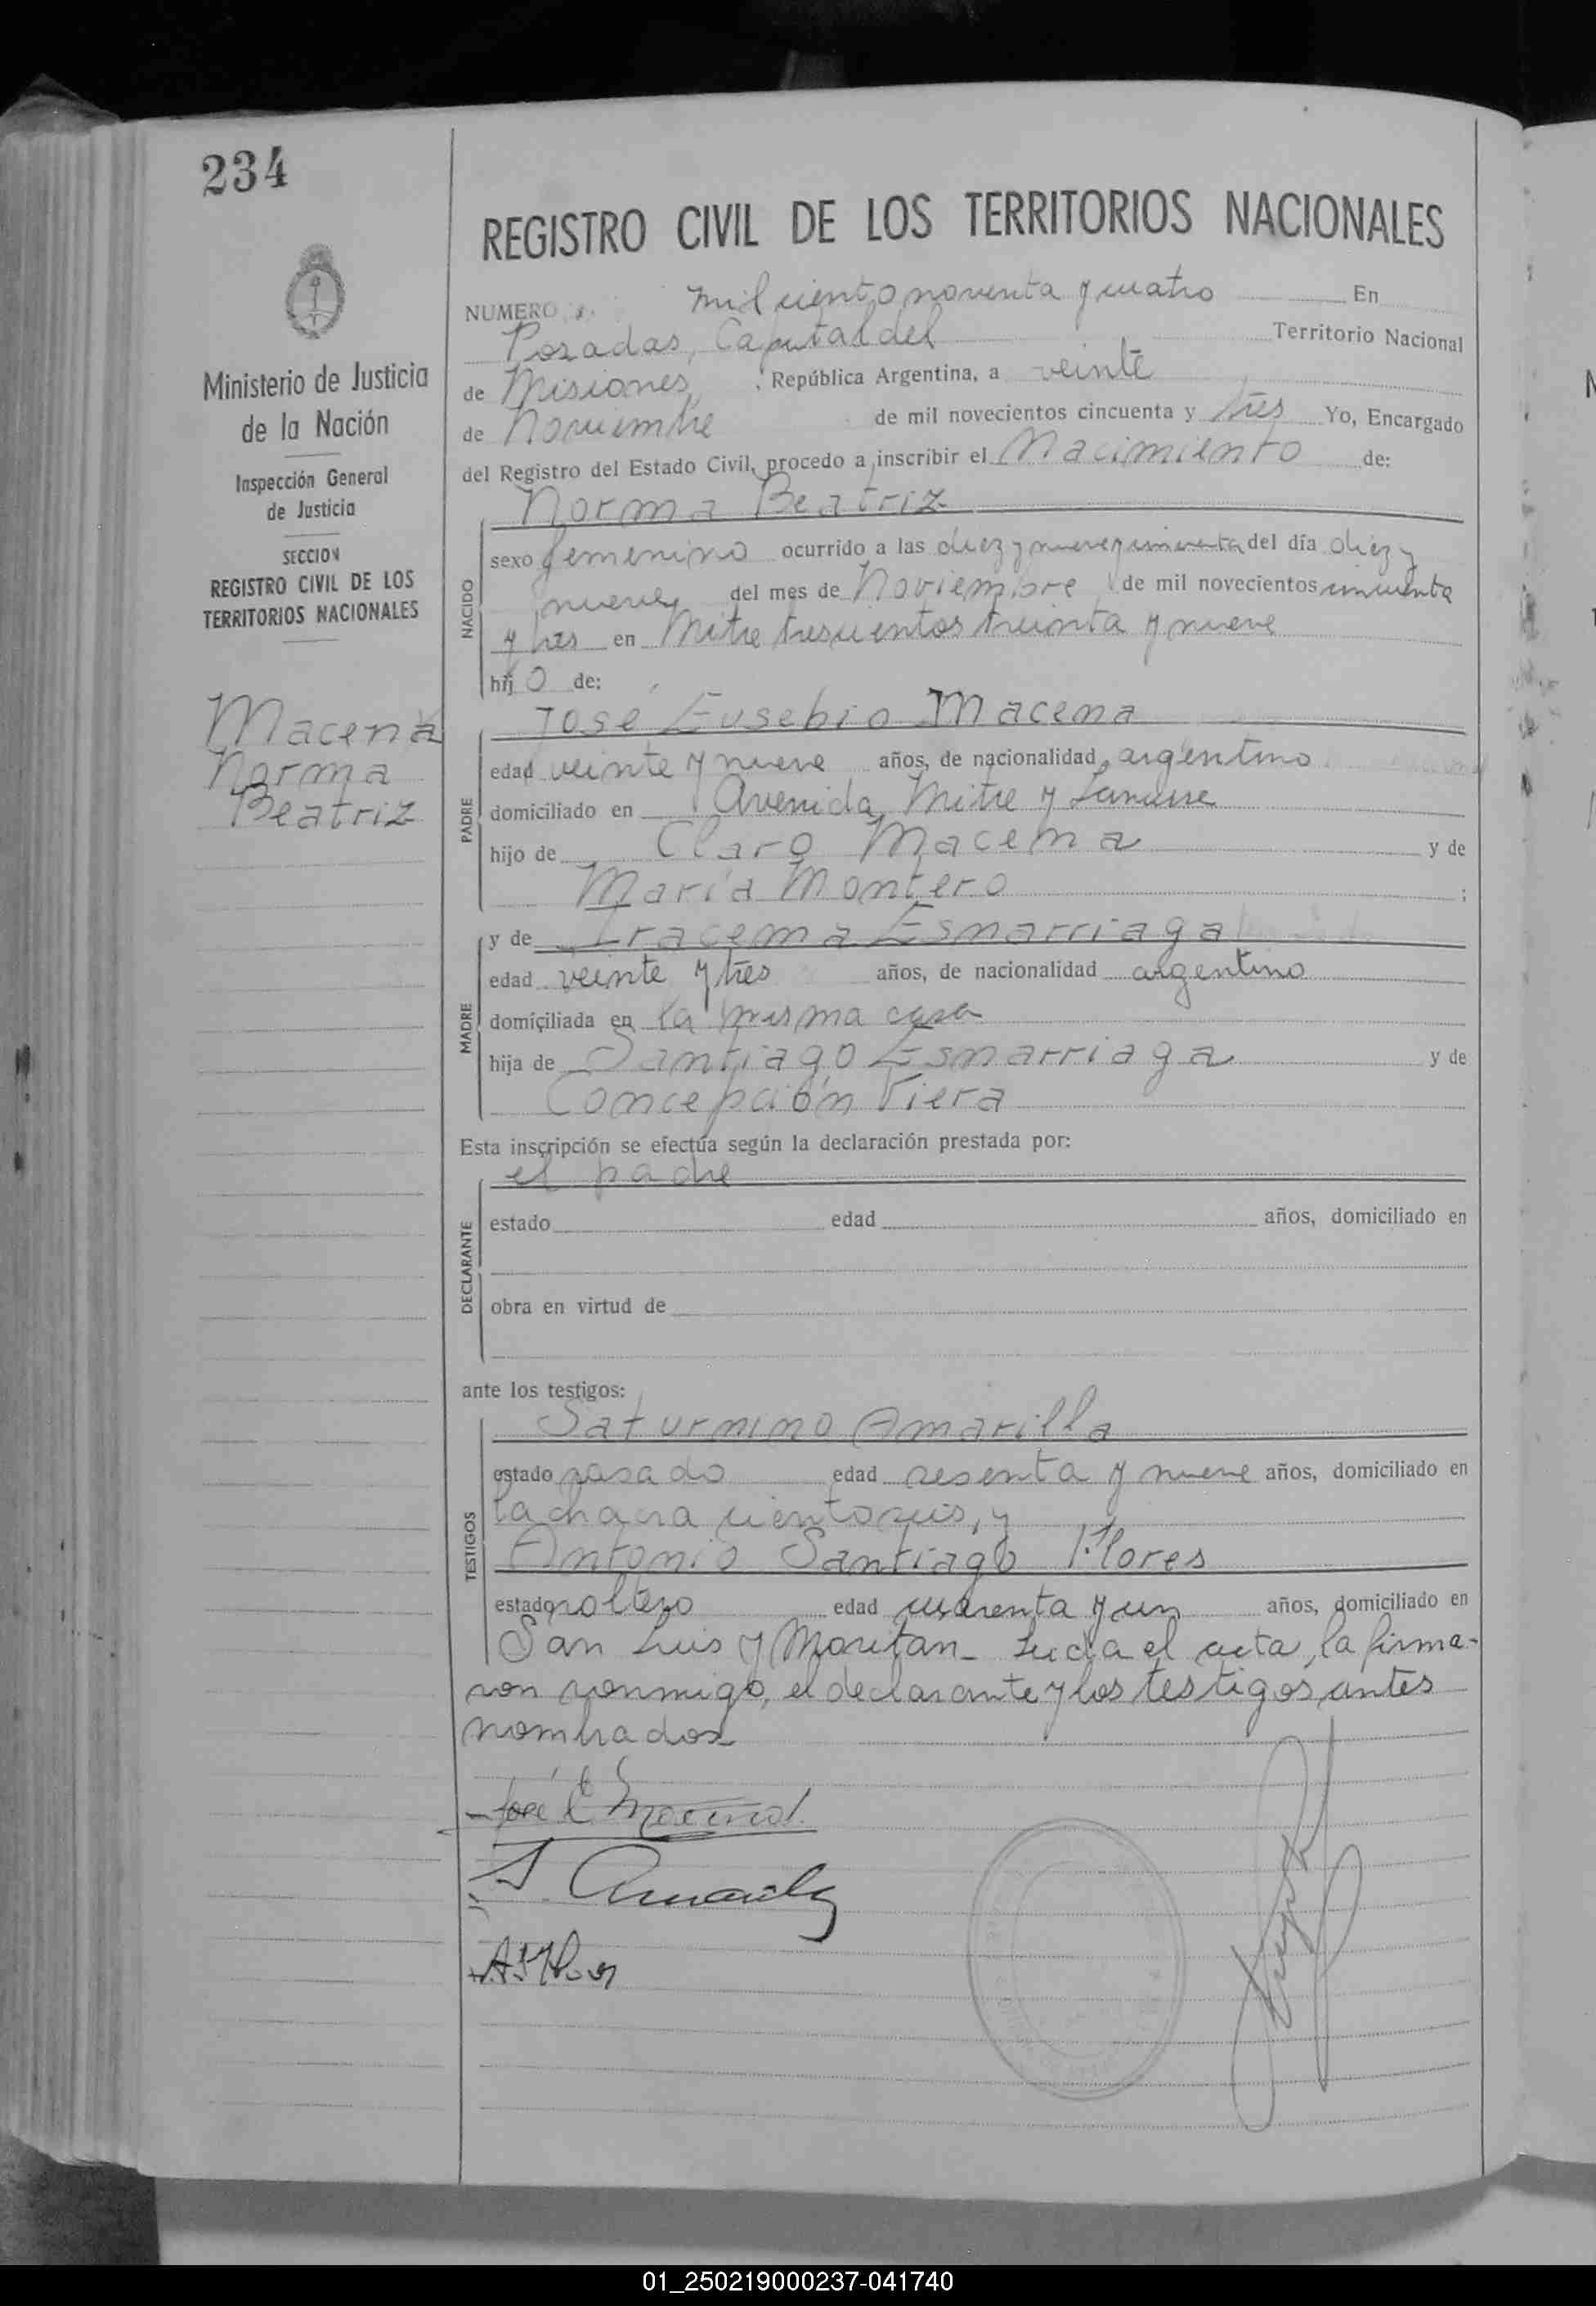 234
REGISTRO CIVIL DE LOS TERRITORIOS NACIONALES
Ministerio de Justicia
de la Nación
Inspección General
de Justicia
SECCION
REGISTRO CIVIL DE LOS
TERRITORIOS NACIONALES
Macena
Norma
Beatriz
NUMERO mil ciento noventa y cuatro En
Posadas, Capital del Territorio Nacional
de Misiones, República Argentina, a veinte
de Noviembre de mil novecientos cincuenta y tres Yo, Encargado
del Registro del Estado Civil, procedo a inscribir el Nacimiento de:
NACIDO
Norma Beatriz
sexo femenino ocurrido a las diez y nueve y cincuenta del día diez y
nueve del mes de Noviembre de mil novecientos cincuenta
y tres en Mitre trescientos treinta y nueve
hij o de:
PADRE
José Eusebio Macena
edad veinte y nueve años, de nacionalidad argentino
domiciliado en Avenida Mitre y
hijo de Claro Macena y de
María Montero ;
MADRE
y de Iracema Esnarriaga
edad veinte y tres años, de nacionalidad argentino
domiciliada en la misma casa
hija de Santiago Esnarriaga y de
Concepción Viera
Esta inscripción se efectúa según la declaración prestada por:
DECLARANTE
el padre
estado edad años, domiciliado en
obra en virtud de
ante los testigos:
TESTIGOS
Saturnino Amarilla
estado casado edad sesenta y nueve años, domiciliado en
la chacra ciento seis, y
Antonio Santiago Flores
estado soltero edad cuarenta y un años, domiciliado en
San Luis y Moritan_ Leida el acta, la firma-
ron conmigo, el declarante y los testigos antes
nombrados_
José E. Macena
S. Amarilla
A S Flores
01_250219000237-041740